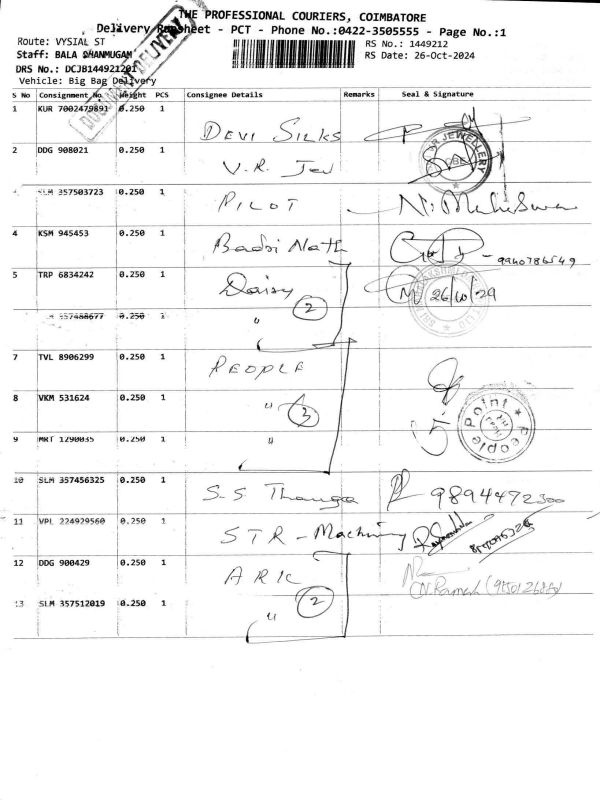 THE PROFESSIONAL COURIERS, COIMBATORE
Delivery Runsheet - PCT - Phone No.:0422-3505555 - Page No.:1
Route: VYSIAL ST
RS No.: 1449212
Staff: BALA SHANMUGAM
RS Date: 26-Oct-2024
DRS No.: DCJB144921201
Vehicle: Big Bag Delivery
DOCUMENT DELIVERY
S No Consignment No Weight PCS Consignee Details Remarks Seal & Signature
1 KUR 7002479891 0.250 1 DEVI SILKS
2 DDG 908021 0.250 1 V.R. Jew
JEWELLERY
CBE
SLM 357503723 0.250 1 PILOT N. Maheswa
4 KSM 945453 0.250 1 Badri Nath - 9940786549
5 TRP 6834242 0.250 1 Daisy 26/10/24
2
357488677 0.250 1 "
7 TVL 8906299 0.250 1 PEOPLE
8 VKM 531624 0.250 1 " 3
People Point
9 MRT 1290035 0.250 1 "
10 SLM 357456325 0.250 1 S.S Thanga 9894472300
11 VPL 224929560 0.250 1 STR - Machinery
12 DDG 900429 0.250 1 ARK
N. Ramesh
13 SLM 357512019 0.250 1 " 2